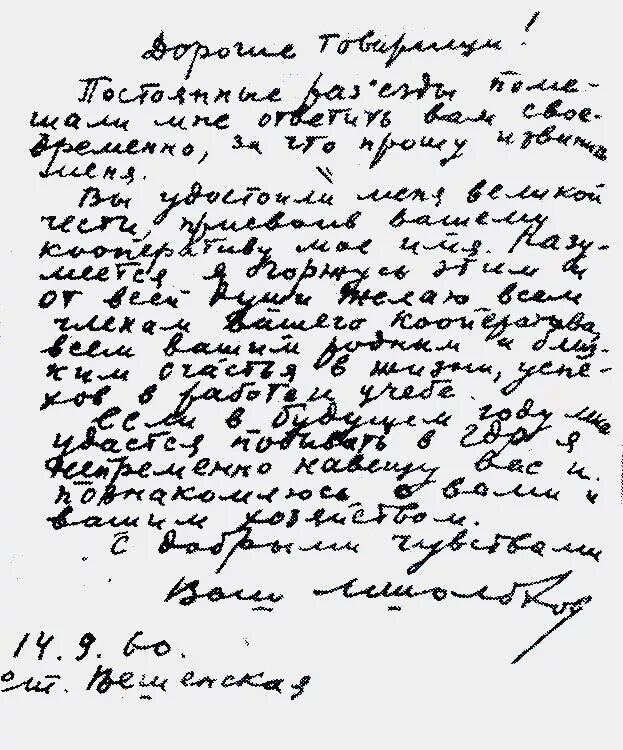 Дорогие товарищи!
Постоянные раз'езды поме-
шали мне ответить вам свое-
временно, за что прошу извинить
меня.
Вы удостоили меня великой
чести, присвоив вашему
кооперативу мое имя. Разу-
меется я горжусь этим и
от всей души желаю всем
членам вашего кооператива,
всем вашим родным и близ-
ким счастья в жизни, успе-
хов в работе и учебе.
Если в будущем году мне
удастся побывать в ГДР я
непременно навещу вас и
познакомлюсь с вами и
вашим хозяйством.
С добрыми чувствами
Ваш М. Шолохов
14.9.60.
ст. Вешенская